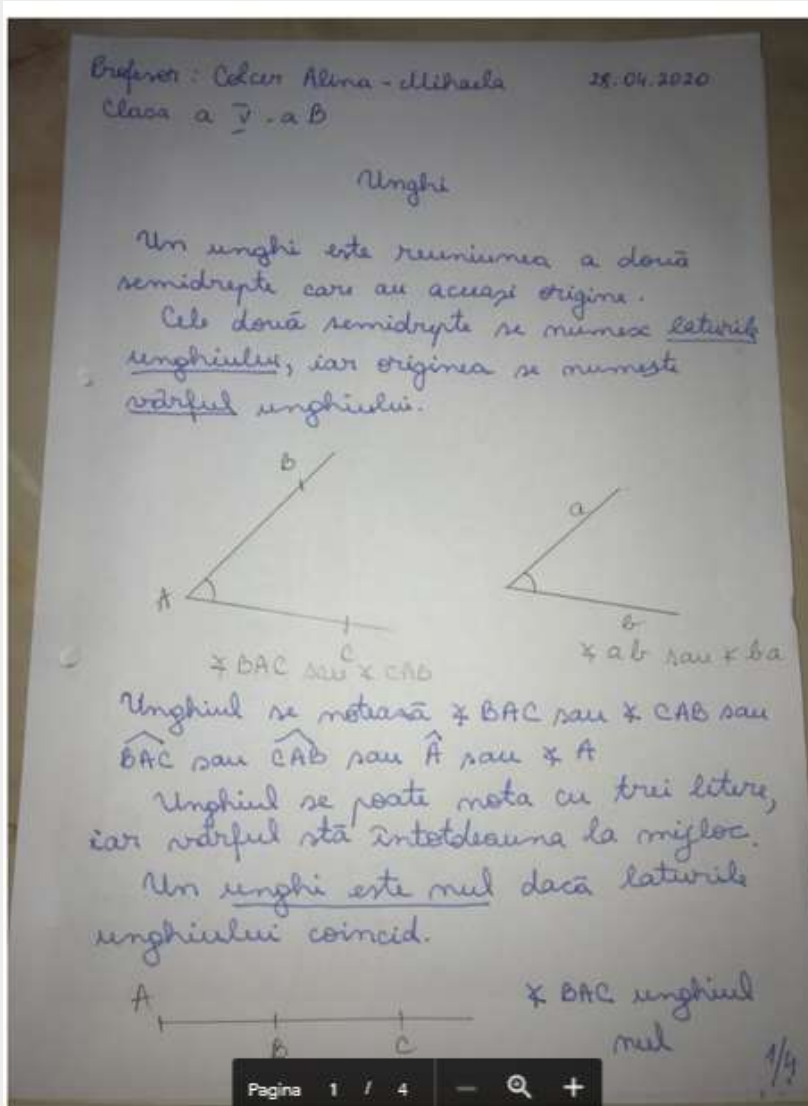 Profesor: Colcer Alina-Mihaela 28.04.2020
Clasa a V-a B
Unghi
Un unghi este reuniunea a două
semidrepte care au aceeași origine.
Cele două semidrepte se numesc laturile
unghiului, iar originea se numește
vârful unghiului.
B
a
A
C
b
∡ BAC sau ∡ CAB
∡ ab sau ∡ ba
Unghiul se notează ∡ BAC sau ∡ CAB sau
B̂AC sau ĈAB sau Â sau ∡ A
Unghiul se poate nota cu trei litere,
iar vârful stă întotdeauna la mijloc.
Un unghi este nul dacă laturile
unghiului coincid.
A
B C
∡ BAC unghiul
nul
1/4
Pagina 1 / 4 — +